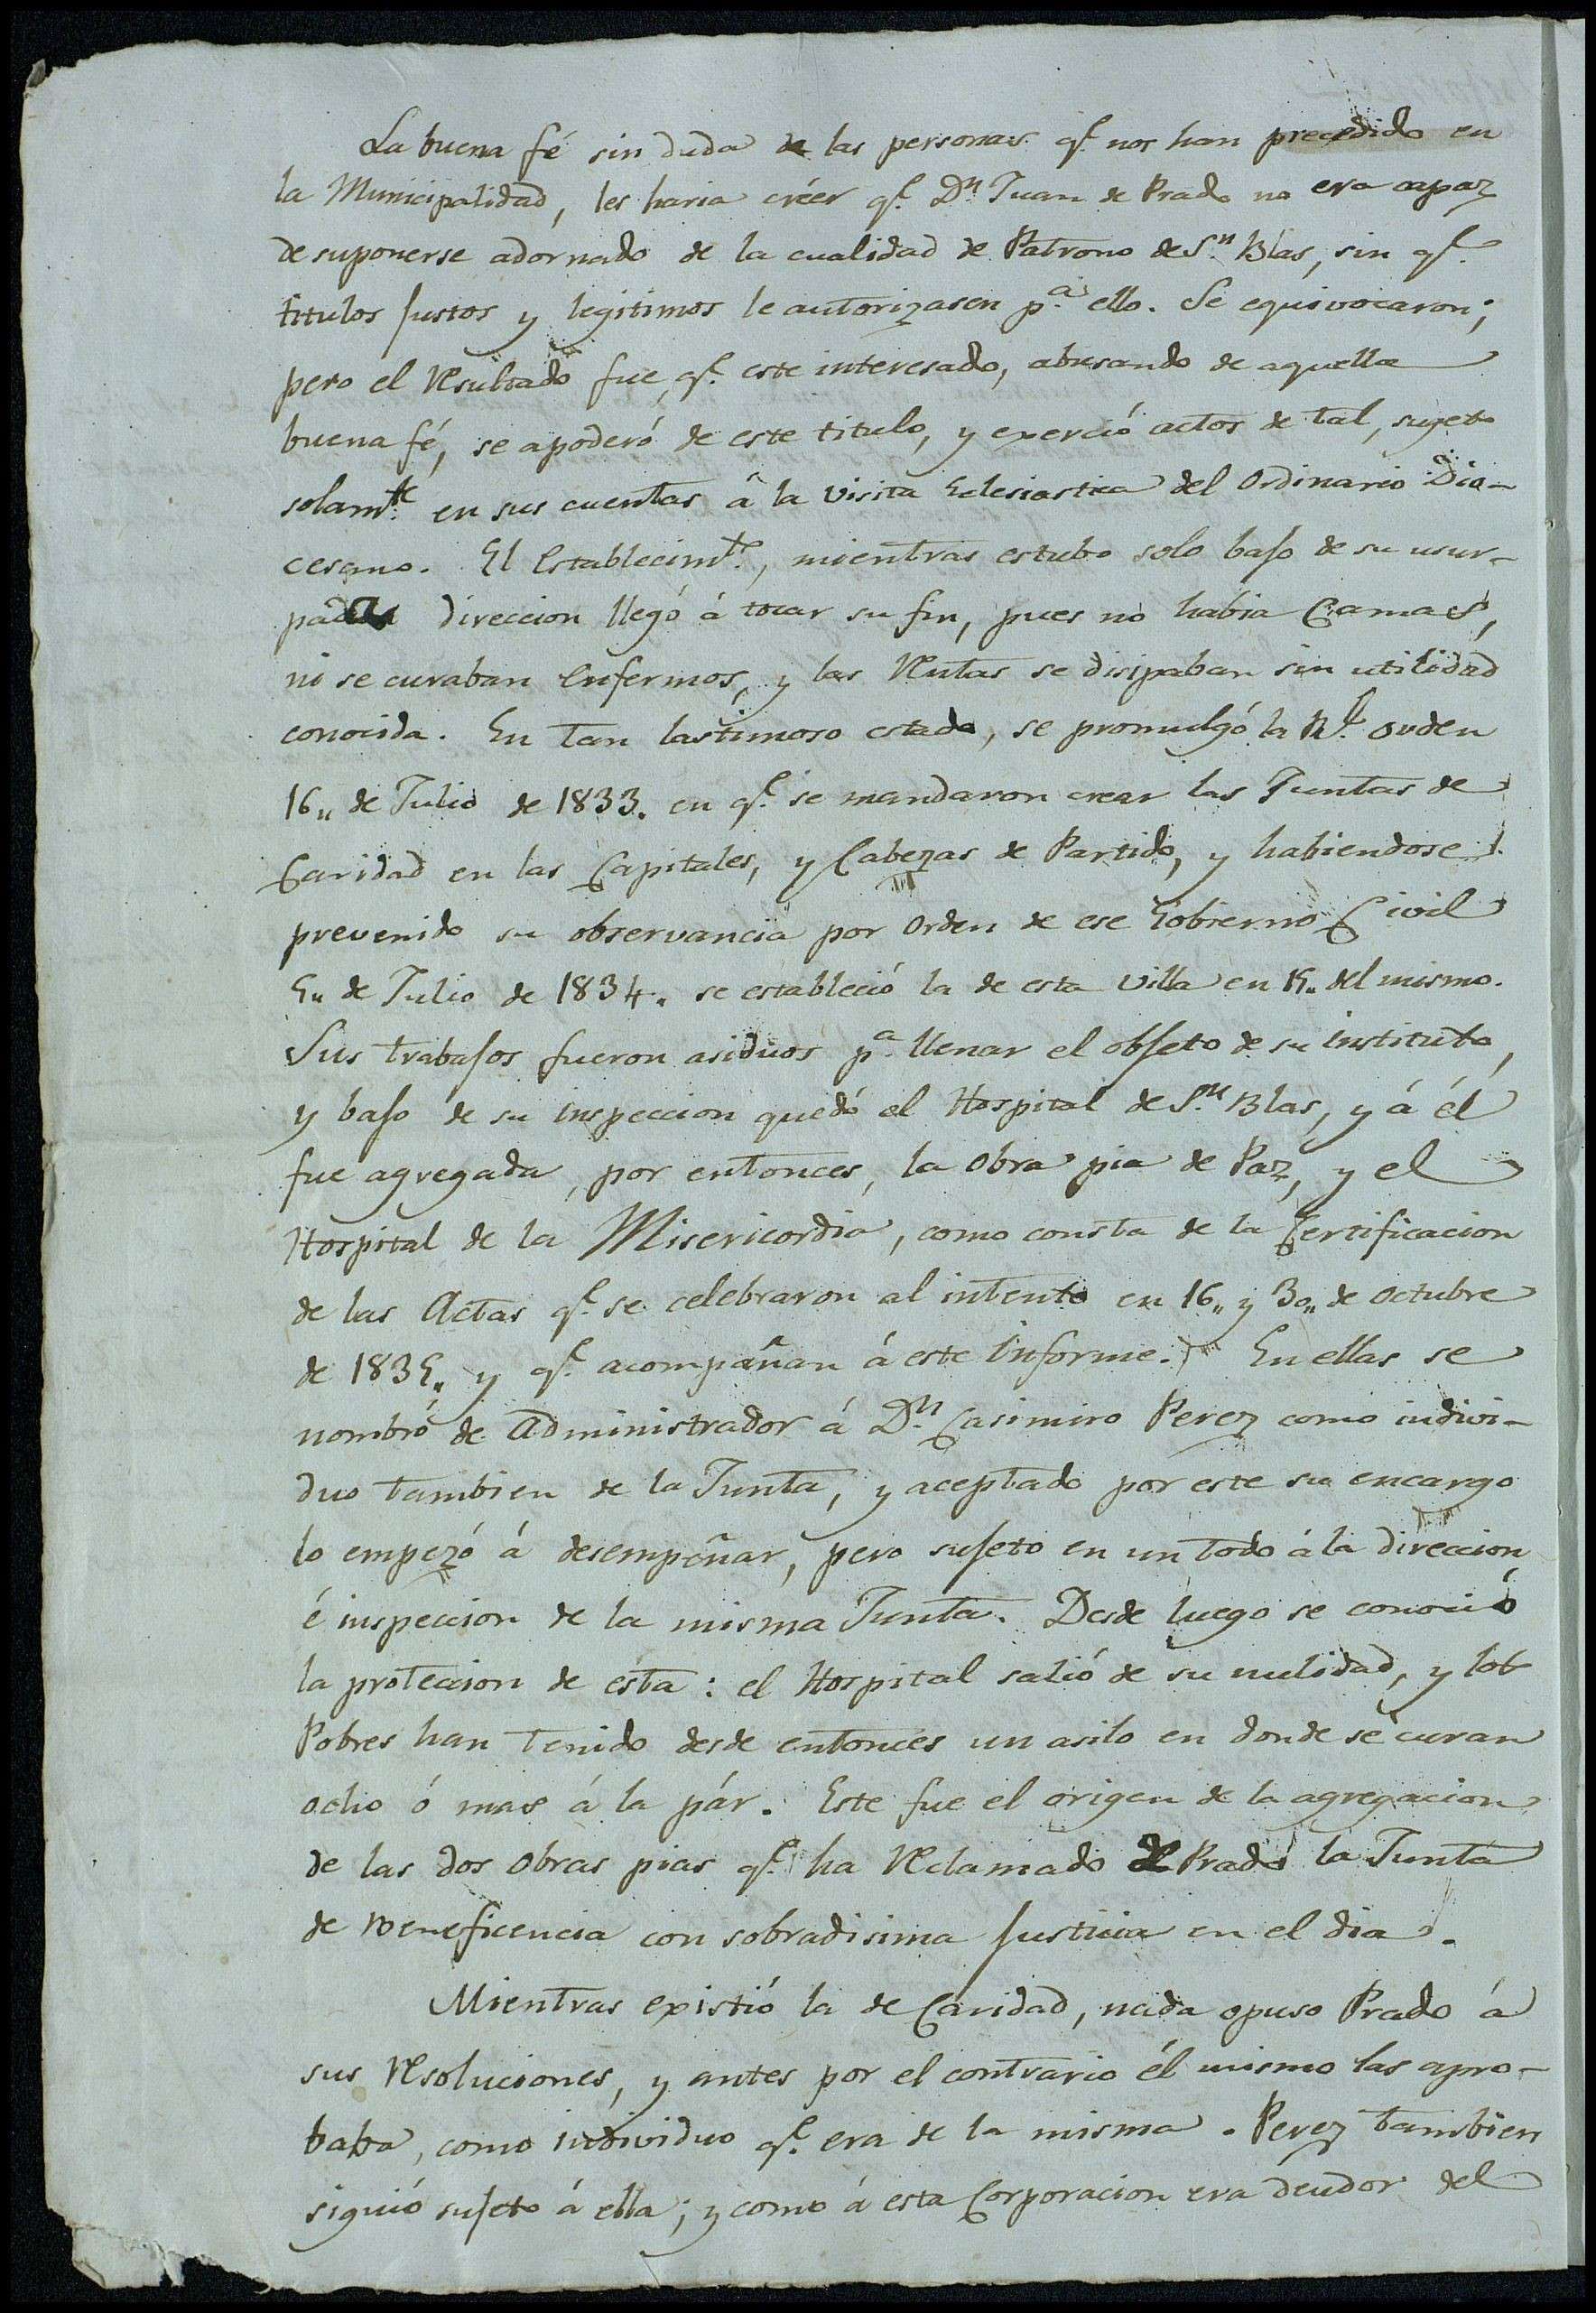 La buena fé sin duda de las personas q.e nos han precedido en
la Municipalidad, les haria créer q.e D.n Juan de Prado no era capaz
de suponerse adornado de la cualidad de Patrono de S.n Blas, sin q.e
titulos justos y legitimos le autorizasen p.a ello. Se equivocaron;
pero el resultado fue, q.e este interesado, abusando de aquella
buena fé, se apoderó de este titulo, y exerció actos de tal, sugeto
solam.te en sus cuentas â la visita Eclesiastica del Ordinario Dio-
cesano. El Establecim.to, mientras estubo solo bajo de su usur-
pada direccion llegó á tocar su fin, pues no habia Camas,
ni se curaban enfermos, y las rentas se disipaban sin utilidad
conocida. En tan lastimoso estado, se promulgó la R.l orden
16,, de Julio de 1833. en q.e se mandaron crear las Juntas de
Caridad en las Capitales, y Cabezas de Partido, y habiendose
prevenido su observancia por orden de ese Gobierno Civil
5,, de Julio de 1834. se estableció la de esta Villa en 15,, del mismo.
Sus trabajos fueron asiduos p.a llenar el objeto de su instituto,
y bajo de su inspeccion quedó el Hospital de S.n Blas, y á él
fue agregada, por entonces, la obra pia de Paz, y el
Hospital de la Misericordia, como consta de la Certificacion
de las Actas q.e se celebraron al intento en 16,, y 30,, de octubre
de 1835,, y q.e acompañan á este informe. En ellas se
nombró de Administrador á D.n Casimiro Perez como indivi-
duo tambien de la Junta, y aceptado por este su encargo
lo empezó á desempeñar, pero sujeto en un todo á la direccion
é inspeccion de la misma Junta. Desde luego se conoció
la proteccion de esta: el Hospital salió de su nulidad, y los
Pobres han tenido desde entonces un asilo en donde se curan
ocho ó mas á la pár. Este fue el origen de la agregacion
de las dos obras pias q.e ha reclamado de Prado la Junta
de Beneficencia con sobradisima justicia en el dia.
Mientras existió la de Caridad, nada opuso Prado á
sus resoluciones, y antes por el contrario él mismo las apro-
baba, como individuo q.e era de la misma. Perez tambien
siguió sujeto á ella; y como á esta Corporacion era deudor del